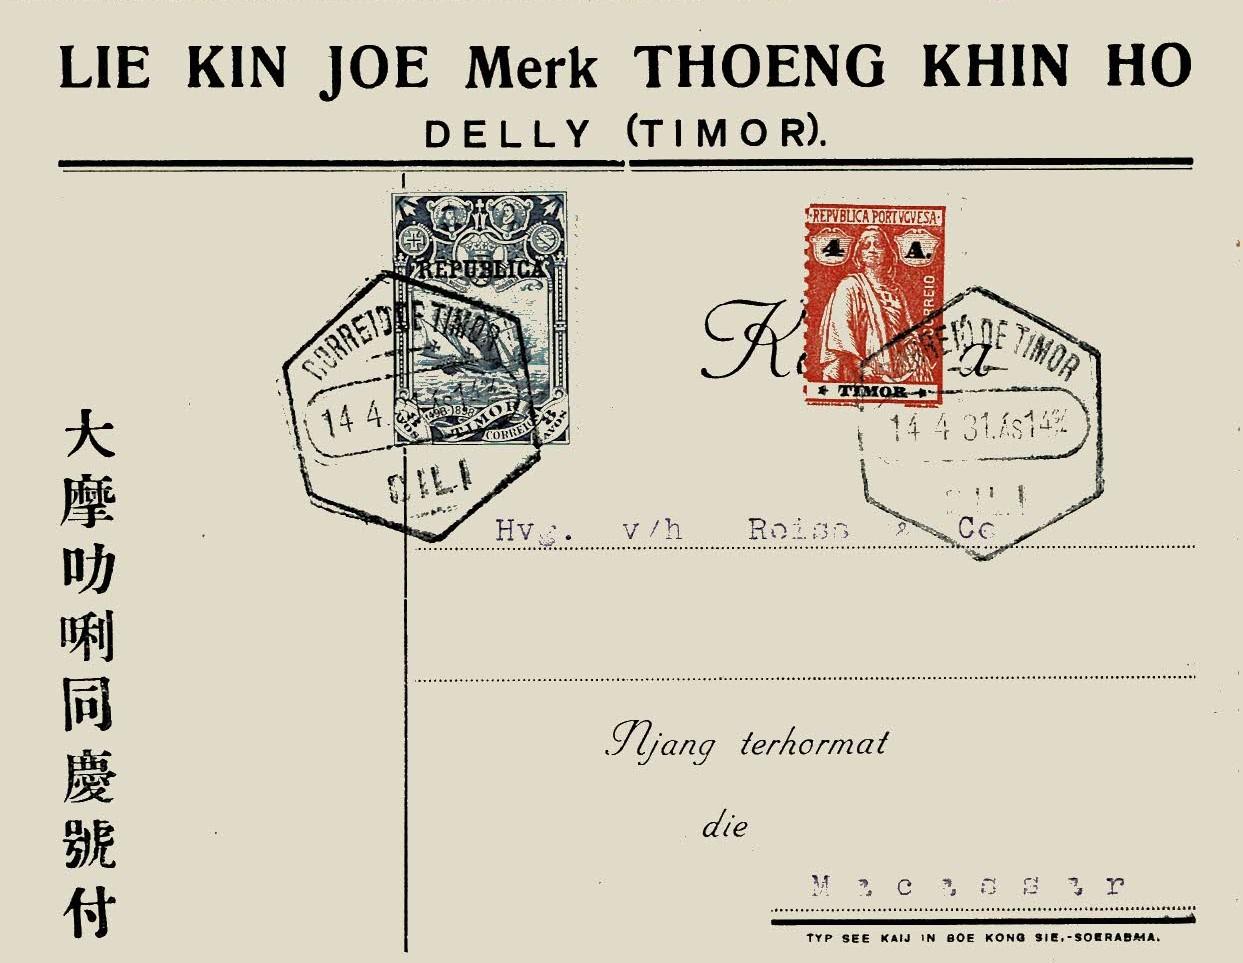 LIE KIN JOE Merk THOENG KHIN HO
DELLY (TIMOR).
REPUBLICA
1498-1898
TIMOR
CORREIO
REPVBLICA PORTVGVESA
4 A.
CORREIO
TIMOR
CORREIO DE TIMOR
14 4.
DILI
CORREIO DE TIMOR
14 4 31.ÀS14½
DILI
Hvg. v/h Roiss & Co
Njang terhormat
die
Macassar
TYP SEE KAIJ IN BOE KONG SIE.-SOERABAIA.
大摩叻唎同慶號付